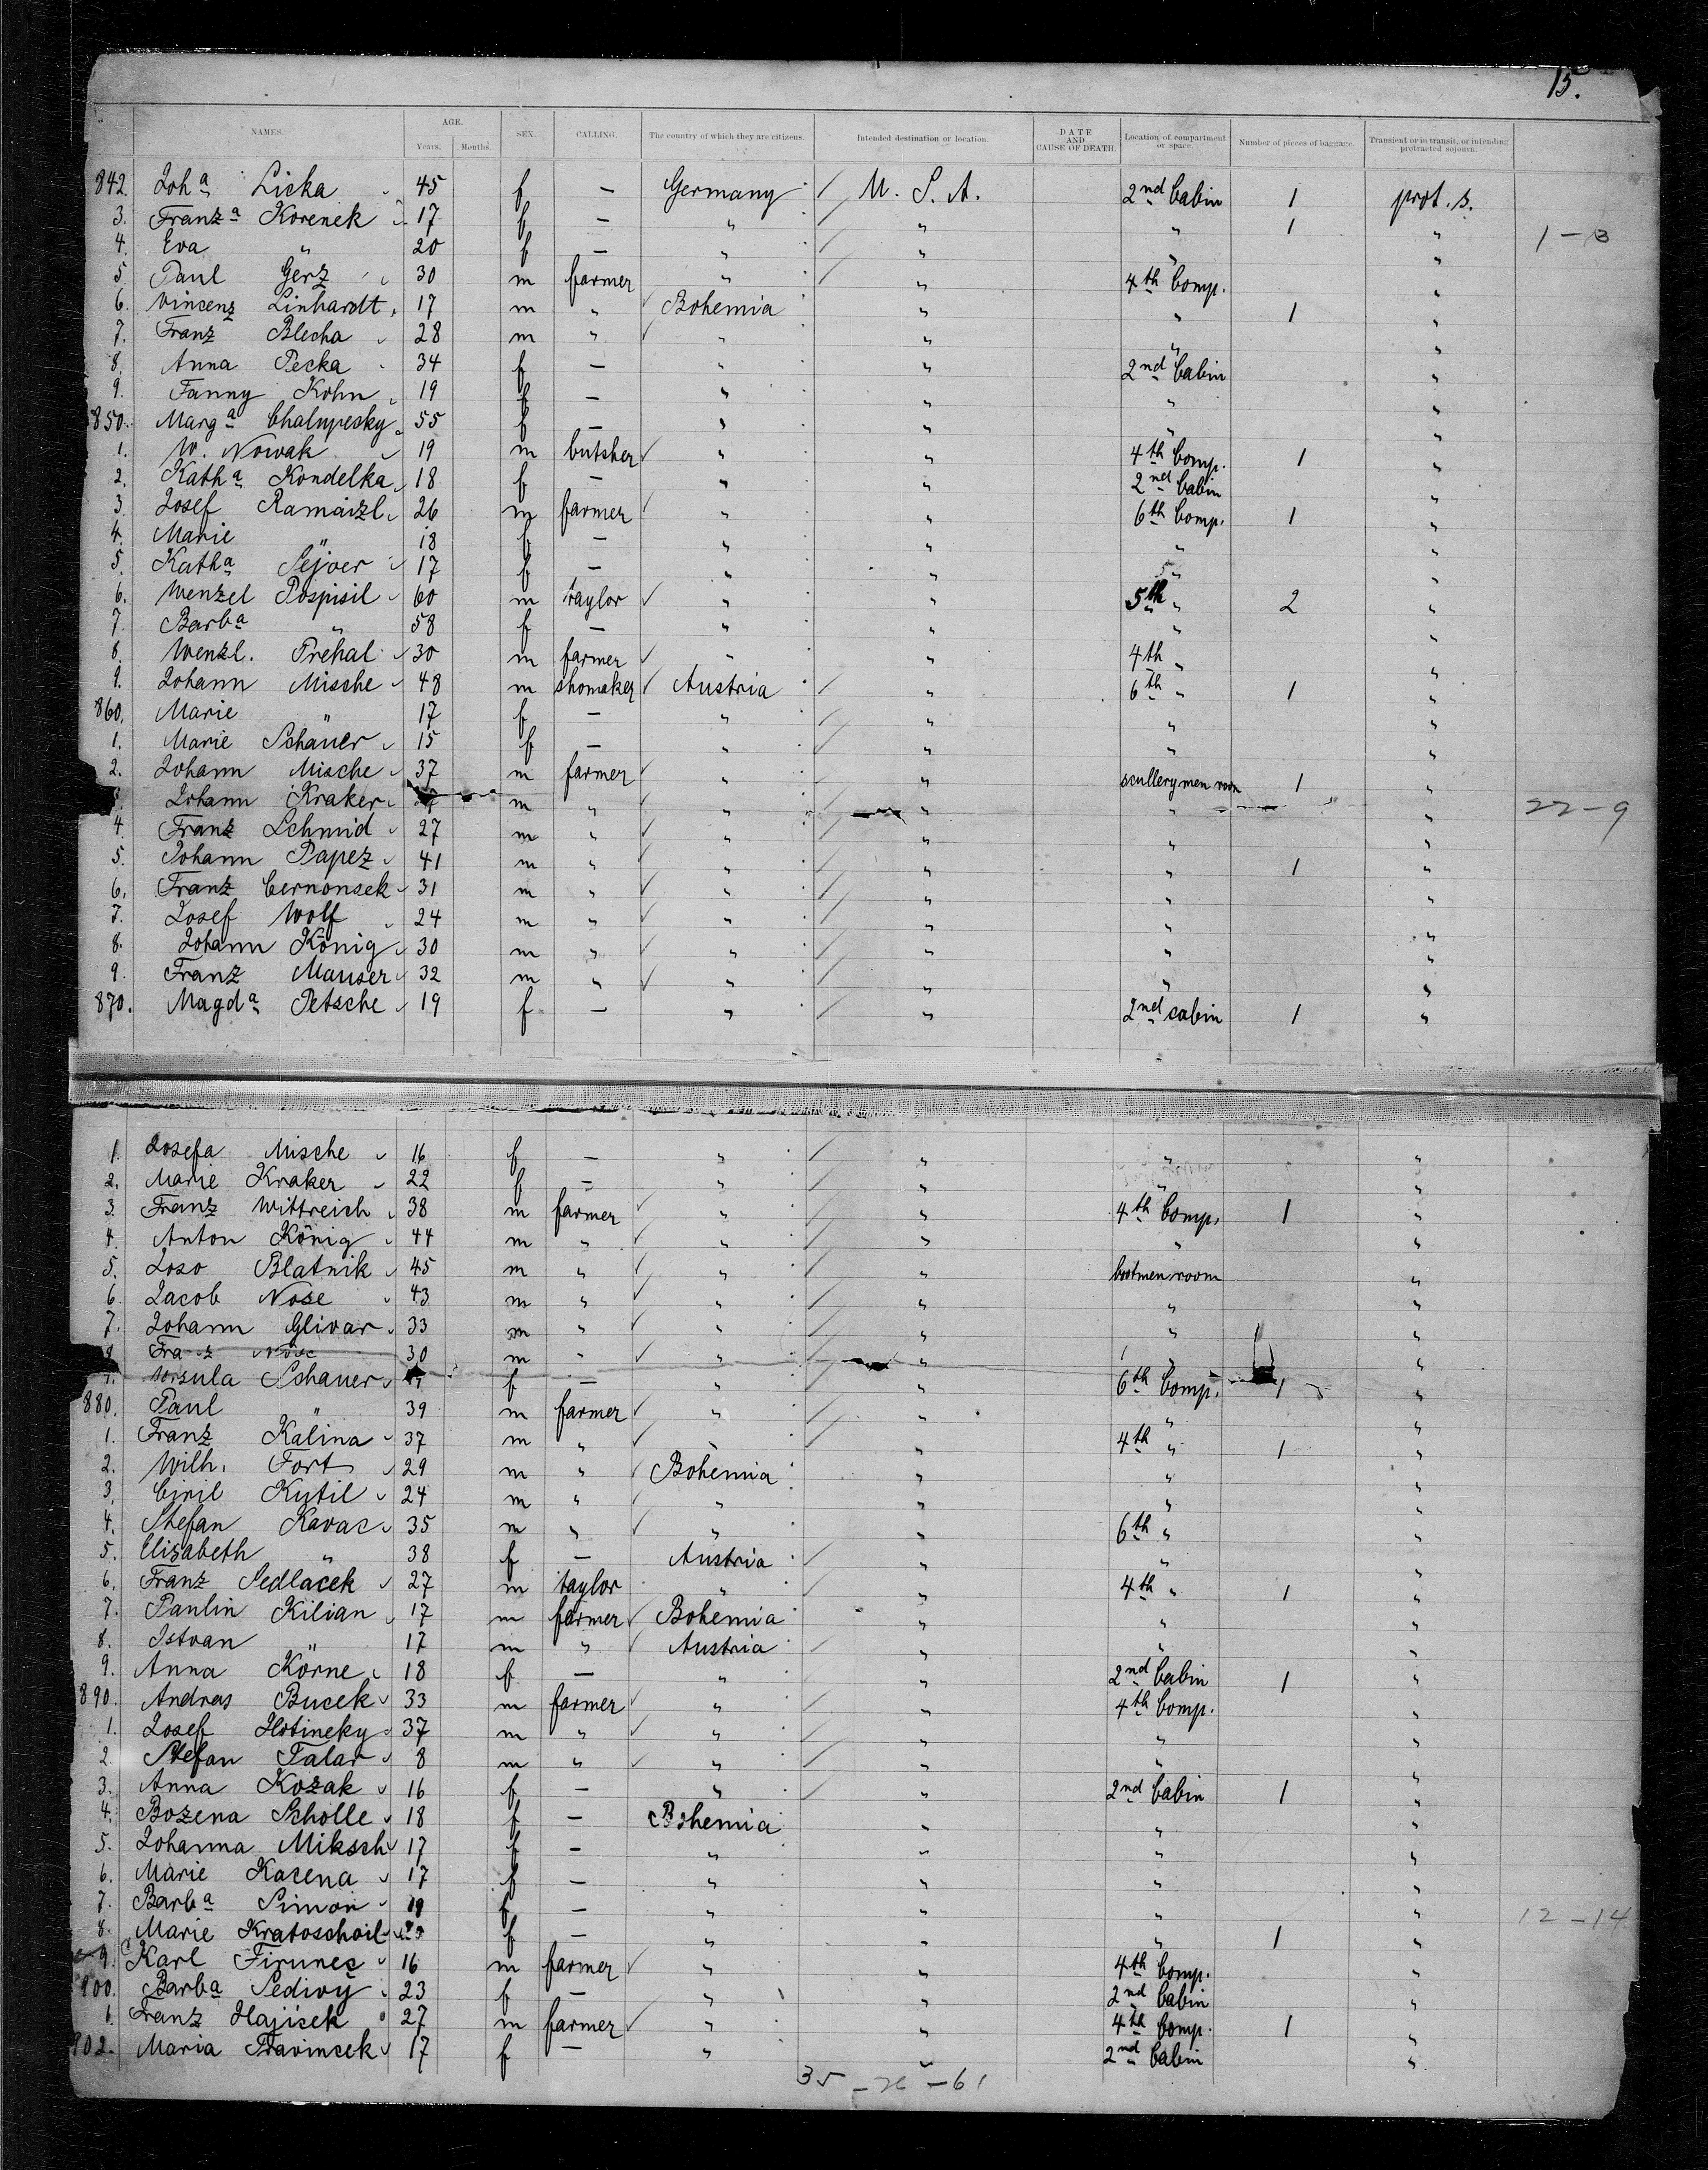 15.
NAMES. AGE. Years. Months. SEX. CALLING. The country of which they are citizens. Intended destination or location. DATE AND CAUSE OF DEATH. Location of compartment or space. Number of pieces of baggage. Transient or in transit, or intending protracted sojourn.
842. Joha Licka 45 f — Germany U. S. A. 2nd Cabin 1 prot. s.
3. Franza Korenek 17 f — " " " 1 "
4. Eva " 20 f — " " " " 1 — 3
5. Paul Gerz 30 m farmer " " 4th Comp. "
6. Vincenz Linhardt 17 m " Bohemia " " 1 "
7. Franz Blecha 28 m " " " " "
8. Anna Pecka 34 f — " " 2nd Cabin "
9. Fanny Kohn 19 f — " " " "
850. Marga Chalupesky 55 f — " " " "
1. W. Nowak 19 m butsher " " 4th Comp. 1 "
2. Katha Kondelka 18 f — " " 2nd Cabin "
3. Josef Ramaizl 26 m farmer " " 6th Comp. 1 "
4. Marie " 18 f — " " " "
5. Katha Sejver 17 f — " " 5 " "
6. Wenzel Pospisil 60 m taylor " " 5th " 2 "
7. Barba " 58 f — " " " "
8. Wenzl. Prehal 30 m farmer " " 4th " "
9. Johann Mische 48 m shomaker Austria " 6th " 1 "
860. Marie " 17 f — " " " "
1. Marie Schauer 15 f — " " " "
2. Johann Mische 37 m farmer " " scullerymen room 1 "
Johann Kraker m " " " " " 22 — 9
4. Franz Schmid 27 m " " " " "
5. Johann Papez 41 m " " " " 1 "
6. Franz Cernonsek 31 m " " " " "
7. Josef Wolf 24 m " " " " "
8. Johann König 30 m " " " " "
9. Franz Mauser 32 m " " " " "
870. Magda Petsche 19 f — " " 2nd cabin 1 "
1. Josefa Mische 16 f — " " " "
2. Marie Kraker 22 f — " " " "
3. Franz Wittreich 38 m farmer " " 4th Comp. 1 "
4. Anton König 44 m " " " " "
5. Joso Blatnik 45 m " " " bootmen room "
6. Jacob Nose 43 m " " " " "
7. Johann Glivar 33 m " " " " "
Franz Nose 30 m " " " " "
Ursula Schauer f — " " 6th Comp. 1 "
880. Paul " 39 m farmer " " " "
1. Franz Kalina 37 m " " " 4th " 1 "
2. Wilh. Fort 29 m " Bohemia " " "
3. Ciril Kutil 24 m " " " " "
4. Stefan Kavac 35 m " " " 6th " "
5. Elisabeth " 38 f — Austria " " "
6. Franz Sedlacek 27 m taylor " " 4th " 1 "
7. Paulin Kilian 17 m farmer Bohemia " " "
8. Istvan " 17 m " Austria " " "
9. Anna Körne 18 f — " " 2nd Cabin 1 "
890. Andras Bucek 33 m farmer " " 4th Comp. "
1. Josef Hotineky 37 m " " " " "
2. Stefan Talar 8 m " " " " "
3. Anna Kozak 16 f — " " 2nd Cabin 1 "
4. Bozena Scholle 18 f — Bohemia " " "
5. Johanna Miksch 17 f — " " " "
6. Marie Kacena 17 f — " " " "
7. Barba Simon 19 f — " " " " 12 — 14
8. Marie Kratoschvil f — " " " 1 "
9. Karl Firunes 16 m farmer " " 4th Comp. "
900. Barba Sedivý 23 f — " " 2nd Cabin "
1. Franz Hajicek 27 m farmer " " 4th Comp. 1 "
902. Maria Travincek 17 f — " " 2nd Cabin "
35 — 26 — 61